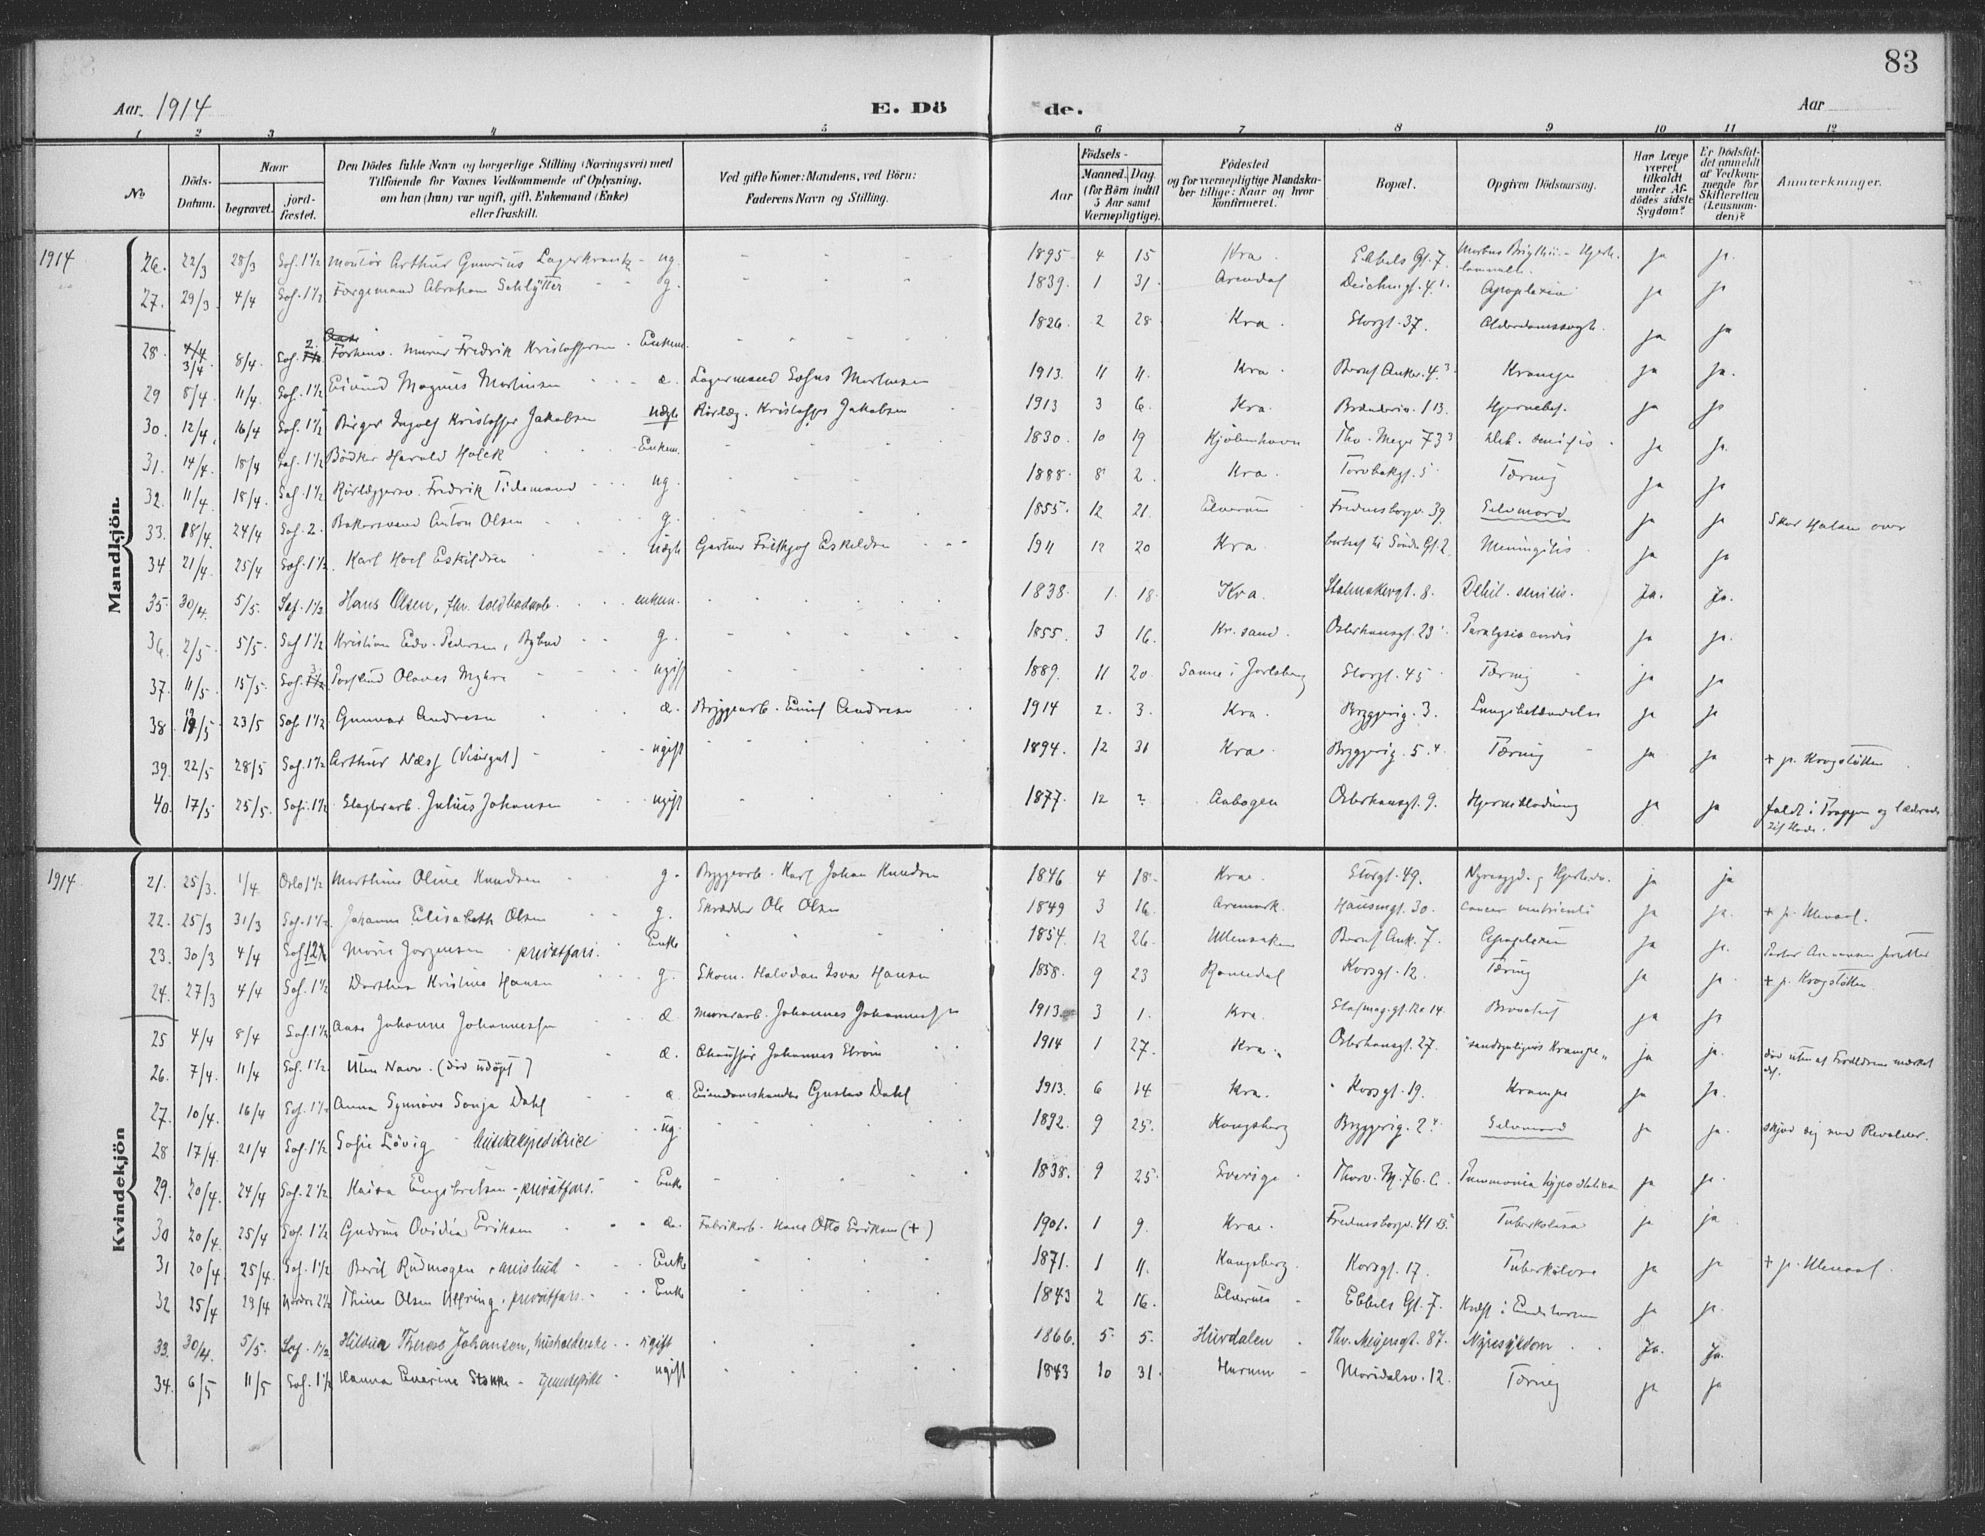 83
Aar 1914 E. Dö de. Aar
1 2 3 4 5 6 7 8 9 10 11 12
No Döds-Datum. Naar begravet. jordfæstet. Den Dödes fulde Navn og borgerlige Stilling (Næringsvei) med Tilföiende for Voxnes Vedkommende af Oplysning, om han (hun) var ugift, gift, Enkemand (Enke) eller fraskilt. Ved gifte Koner: Mandens, ved Börn: Faderens Navn og Stilling. Födsels- Aar Maaned. Dag. (for Börn indtil 5 Aar samt Værnepligtige). Födested og for værnepligtige Mandskaber tillige: Naar og hvor konfirmeret. Bopæl. Opgiven Dödsaarsag. Har Læge været tilkaldt under Afdödes sidste Sygdom? Er Dödsfaldet anmeldt af Vedkommende for Skifteretten (Lensmanden)? Anmærkninger.
Mandkjön
1914 26. 22/3 28/3 Sof. 1 1/2 Montör Arthur Gunerius Lagerkrantz ug. 1895 4 15 Kra. Ebbels Gt. 7. Morbus Brigthii - ja ja.
27. 29/3 4/4 Sof. 1 1/2 Færgemand Abraham Schlytter g. 1839. 1 31. Arendal Deichmgt. 4. Apoplexia ja ja
28. 4/4 3/4 8/4. Sof. 2. Forhenv. Murer Fredrik Kristoffersen Enkem. 1826. 2 28. Kra. Storgt. 37. Alderdomssvagh. ja ja
29 5/4 11/4. Sof. 1 1/2 Eivind Magnus Martinsen æ. Lagermand Sofus Martinsen 1913. 11 11. Kra. Bernt Anker. 4. Krampe ja ja.
30. 12/4. 16/4 Sof. 1 1/2 Birger Ingolf Kristoffer Jakobsen uægte Rörlæg. Kristoffer Jakobsen 1913 3 6. Kra. Brenneriv. 1 B. Hjernebet. ja ja
31. 14/4. 18/4 Sof. 1 1/2 Bödker Harald Holck Enkem. 1830. 10 19 Kjöbenhavn Thv. Meyer 73 Deb. senilis ja ja.
32. 11/4. 18/4. Sof. 1 1/2 Rörlæggersv. Fredrik Tidemand ug. 1888. 8 2. Kra Torvbakgt. 5 Tæring ja ja
33. 18/4. 24/4 Sof. 2. Bakersvend Anton Olsen g. 1855. 12 21. Elverum Fredensborgv. 39. Selvmord ja ja Skar Halsen over
34 21/4. 25/4 Sof. 1 1/2. Karl Hoel Eskildsen uægte Gartner Fritkjof Eskildsen 1911 12 20 Kra. Söndre Gt. 2. Meningitis. ja ja
35. 30/4. 5/5. Sof. 1 1/2 Hans Olsen, fhv. toldbodarb. enkem. 1838. 1. 18. Kra. Stolmakergt. 8. Debil. senilis. Ja. Ja.
36. 2/5. 5/5. Sof 1 1/2 Kristian Edv. Pedersen, Bybud g. 1855. 3 16. Kr. sand. Osterhausgt. 23. Paralysis cordis ja ja.
37. 11/5 15/5. Sof. Torleiv Olaves Myhre ugift 1889. 11 20. Sanne i Jarlsberg Storgt. 45 Tæring ja ja
38 19/5. 23/5 Sof. 1 1/2 Gunnar Andresen æ. Bryggearb. Emil Andresen 1914 2. 3. Kra. Bryggerig. 3. Lungebetændelse ja ja
39. 22/5 28/5 Sof. 1 1/2 Arthur Næss (Visergut) ugift 1894. 12 31 Kra. Bryggerig. 5. Tæring ja ja + p. Krogstötten
40. 17/5 25/5. Sof. 1 1/2 Slagterarb. Julius Johansen ugift 1877. 12 ? Aabogen Osterhausgt. 9. Hjerneblödning ja ja faldt i Trappen og læderede sit Hode.
Kvindekjön
1914 21. 25/3. 1/4 Oslo 1 1/2 Marthine Oline Knudsen g. Bryggearb. Karl Johan Knudsen 1846 4 18. Kra. Storgt. 49. Nyresygd. og ja ja
22. 25/3 31/3 Sof. 1 1/2. Johanne Elisabeth Olsen g. Skrædder Ole Olsen 1849 3 16. Aremark. Hausmgt. 30. Cancer ventriculi ja ja. + p. Ullevaal.
23. 30/3 4/4 Sof. Marie Jørgensen - privatfors. Enke 1854. 12 26. Ullensaker Bernt Ank. 7. Apoplexia ja ja. Pastor
24. 27/3 4/4 Sof. 1 1/2 Dorthea Kristine Hansen g. Skom. Halvdan Isva Hansen 1858. 9 23 Romedal Korsgt. 12. Tæring ja ja. + p. Krogstötten
25 4/4 8/4 Sof. 1 1/2 Aase Johanne Johannessen æ. Murerarb. Johannes Johannessen 1913. 3 1. Kra. Bronchit ja ja
26. 7/4. 11/4 Sof. 1 1/2 Uten Navn. (död udöpt) æ. Chauffør Johannes Ström 1914 1 27. Kra. Osterhausgt. 27. "sandsynligvis Krampe" ja ja. död uten at Forældrene merket det.
27. 10/4. 16/4 Sof. 1 1/2 Anna Synnöve Sonja Dahl æ Eiendomshandler Gustav Dahl 1913. 6 14 Kra. Korsgt. 19. Krampe ja ja.
28 17/4. 21/4 Sof. 1 1/2 Sofie Lövig ug. 1892. 9 25. Kongsberg Bryggerig. 2. Selvmord ja ja. skjöd sig med Revolver.
29. 20/4. 24/4 Sof. 2 1/2 Kaisa Engebretsen - privatfors. Enke 1838. 9 25. Sverige Thorv. M. 76. C. Pneumonia hypostatica ja ja
30 20/4. 25/4 Sof. 1 1/2 Gudrun Ovidia Eriksen æ. Fabrikarb. Hans Otto Eriksen (+) 1901. 1 9. Kra. Fredensborgv. 41 Tuberkulose ja ja
31 20/4 25/4. Sof. 1 1/2 Berit Rudmogen Enke 1871. 1 11. Kongsberg. Korsgt. 17. Tuberkulose ja ja + p. Ullevaal.
32 25/4 29/4 Nordre 2 1/2 Thina Olsen Ulfring. privatfors. Enke 1843 2 16. Elverum Ebbels Gt. 7. Kræft i ja ja.
33. 30/4. 5/5. Sof. 1 1/2 Hilda Therese Johansen, husholderske ugift 1866. 5. 5. Hurdalen Thv. Meyersgt. 87. Nyresygdom Ja. Ja.
34. 6/5 11/5 Sof. 1 1/2 Hanna Enerine Stokke - tjenestepike ugift 1843 10 31. Hurum Maridalsv. 12. Tæring ja ja